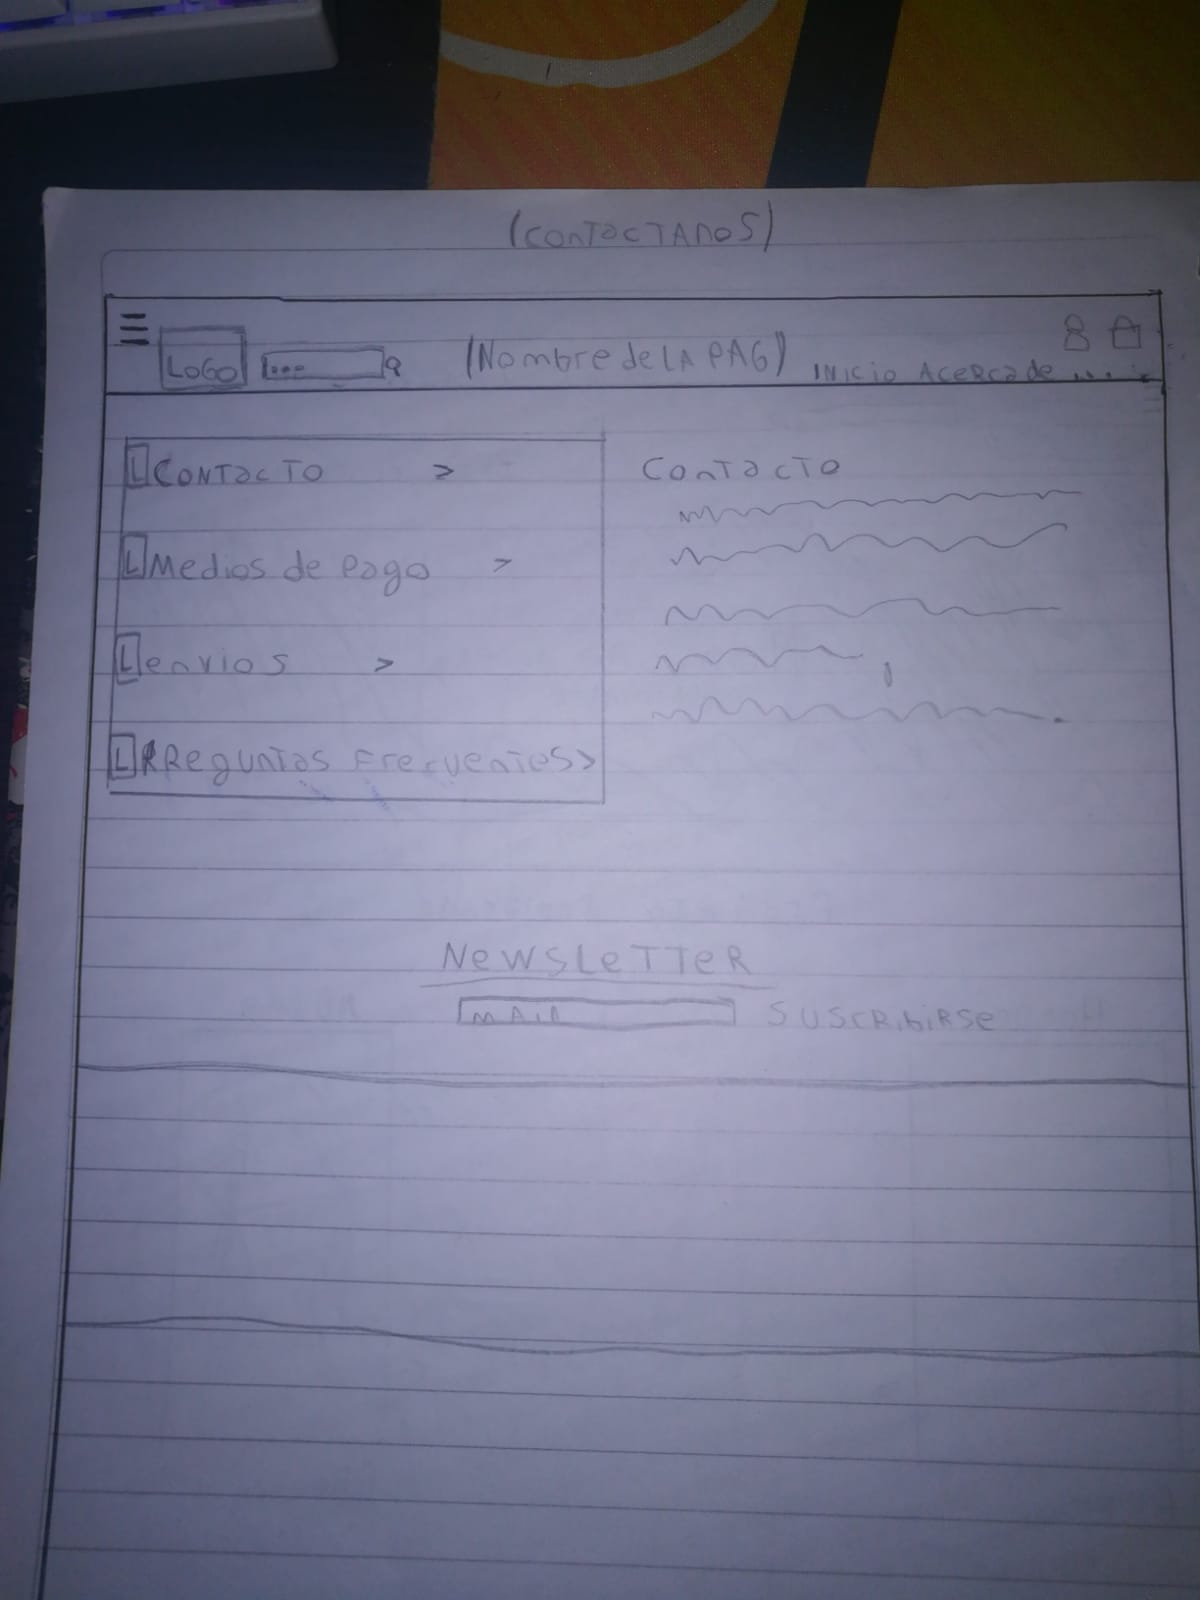 (CONTACTANOS)
LOGO ... (Nombre de LA PAG) INICIO ACERCA de ...
L CONTACTO > CONTACTO
L Medios de Pago >
L envios >
L PReguntas Frecuentes >
NEWSLETTER
MAIL SUSCRIBIRSE